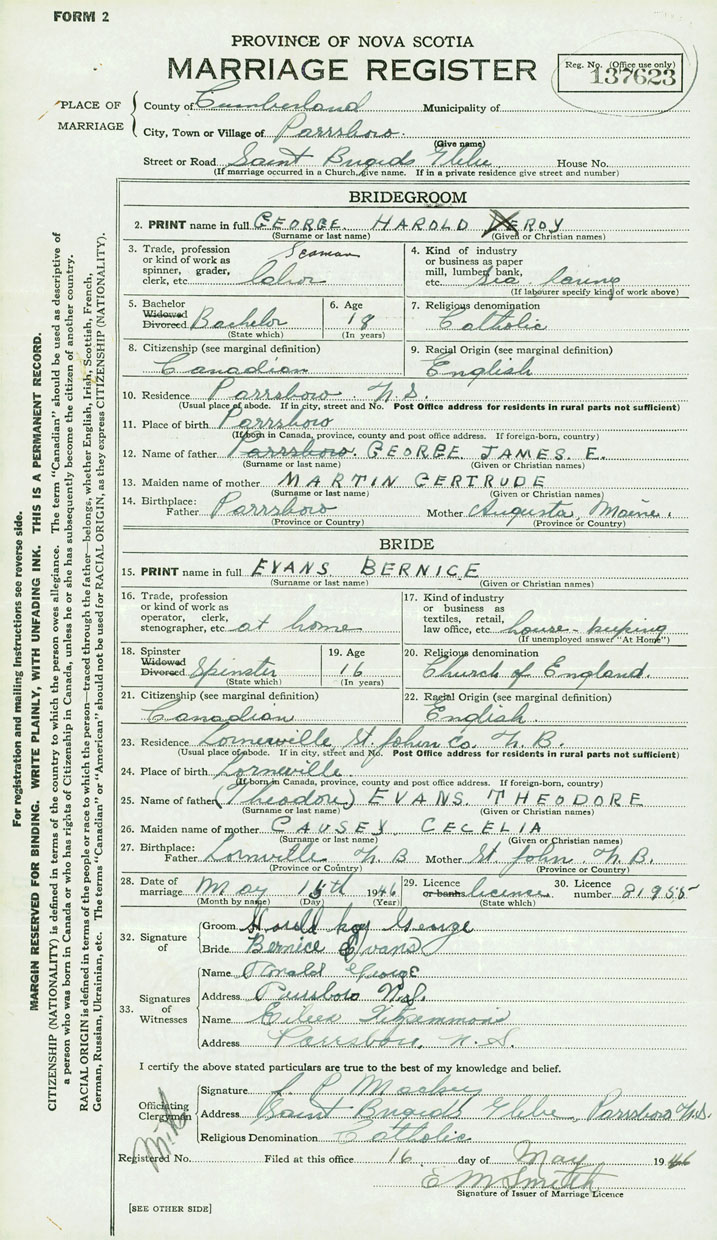 FORM 2
PROVINCE OF NOVA SCOTIA
MARRIAGE REGISTER
Reg. No. (Office use only)
137623
PLACE OF MARRIAGE
County of Cumberland Municipality of
City, Town or Village of Parrsboro.
(Give name)
Street or Road Saint Brigids Glebe House No.
(If marriage occurred in a Church, give name. If in a private residence give street and number)
BRIDEGROOM
2. PRINT name in full GEORGE HAROLD ROY
(Surname or last name) (Given or Christian names)
3. Trade, profession or kind of work as spinner, grader, clerk, etc. Seaman labor
4. Kind of industry or business as paper mill, lumber, bank, etc. Sea faring
(If labourer specify kind of work above)
5. Bachelor Widowed Divorced Bachelor
(State which)
6. Age 18
(In years)
7. Religious denomination
Catholic
8. Citizenship (see marginal definition)
Canadian
9. Racial Origin (see marginal definition)
English
10. Residence Parrsboro N.S.
(Usual place of abode. If in city, street and No. Post Office address for residents in rural parts not sufficient)
11. Place of birth Parrsboro
(If born in Canada, province, county and post office address. If foreign-born, country)
12. Name of father Parrsboro. GEORGE JAMES. E.
(Surname or last name) (Given or Christian names)
13. Maiden name of mother MARTIN GERTRUDE
(Surname or last name) (Given or Christian names)
14. Birthplace:
Father Parrsboro Mother Augusta, Maine.
(Province or Country) (Province or Country)
BRIDE
15. PRINT name in full EVANS BERNICE
(Surname or last name) (Given or Christian names)
16. Trade, profession or kind of work as operator, clerk, stenographer, etc. at home
17. Kind of industry or business as textiles, retail, law office, etc. house-keeping
(If unemployed answer "At Home")
18. Spinster Widowed Divorced Spinster
(State which)
19. Age 16
(In years)
20. Religious denomination
Church of England.
21. Citizenship (see marginal definition)
Canadian
22. Racial Origin (see marginal definition)
English.
23. Residence Lorneville St. John Co. N.B.
(Usual place of abode. If in city, street and No. Post Office address for residents in rural parts not sufficient)
24. Place of birth Lorneville
(If born in Canada, province, county and post office address. If foreign-born, country)
25. Name of father (Theodore) EVANS THEODORE
(Surname or last name) (Given or Christian names)
26. Maiden name of mother CAUSEY CECELIA
(Surname or last name) (Given or Christian names)
27. Birthplace:
Father Lornville N.B Mother St. John. N.B.
(Province or Country) (Province or Country)
28. Date of marriage May 15th 1946
(Month by name) (Day) (Year)
29. Licence or banns license
(State which)
30. Licence number 81955
32. Signature of
Groom Harold Roy George
Bride Bernice Evans
33. Signatures of Witnesses
Name Donald George
Address Parrsboro N.S.
Name Eileen Fitzsimmons
Address Parrsboro, N.S.
I certify the above stated particulars are true to the best of my knowledge and belief.
Officiating Clergyman
Signature
Address Saint Brigid's Glebe, Parrsboro N.S.
Religious Denomination Catholic
Registered No. Filed at this office 16 day of May 1946
E M Smith
Signature of Issuer of Marriage Licence
[SEE OTHER SIDE]
For registration and mailing instructions see reverse side.
MARGIN RESERVED FOR BINDING. WRITE PLAINLY, WITH UNFADING INK. THIS IS A PERMANENT RECORD.
CITIZENSHIP (NATIONALITY) is defined in terms of the country to which the person owes allegiance. The term "Canadian" should be used as descriptive of
a person who was born in Canada or who has rights of Citizenship in Canada, unless he or she has subsequently become the citizen of another country.
RACIAL ORIGIN is defined in terms of the people or race to which the person—traced through the father—belongs, whether English, Irish, Scottish, French,
German, Russian, Ukrainian, etc. The terms "Canadian" or "American" should not be used for RACIAL ORIGIN, as they express CITIZENSHIP (NATIONALITY).